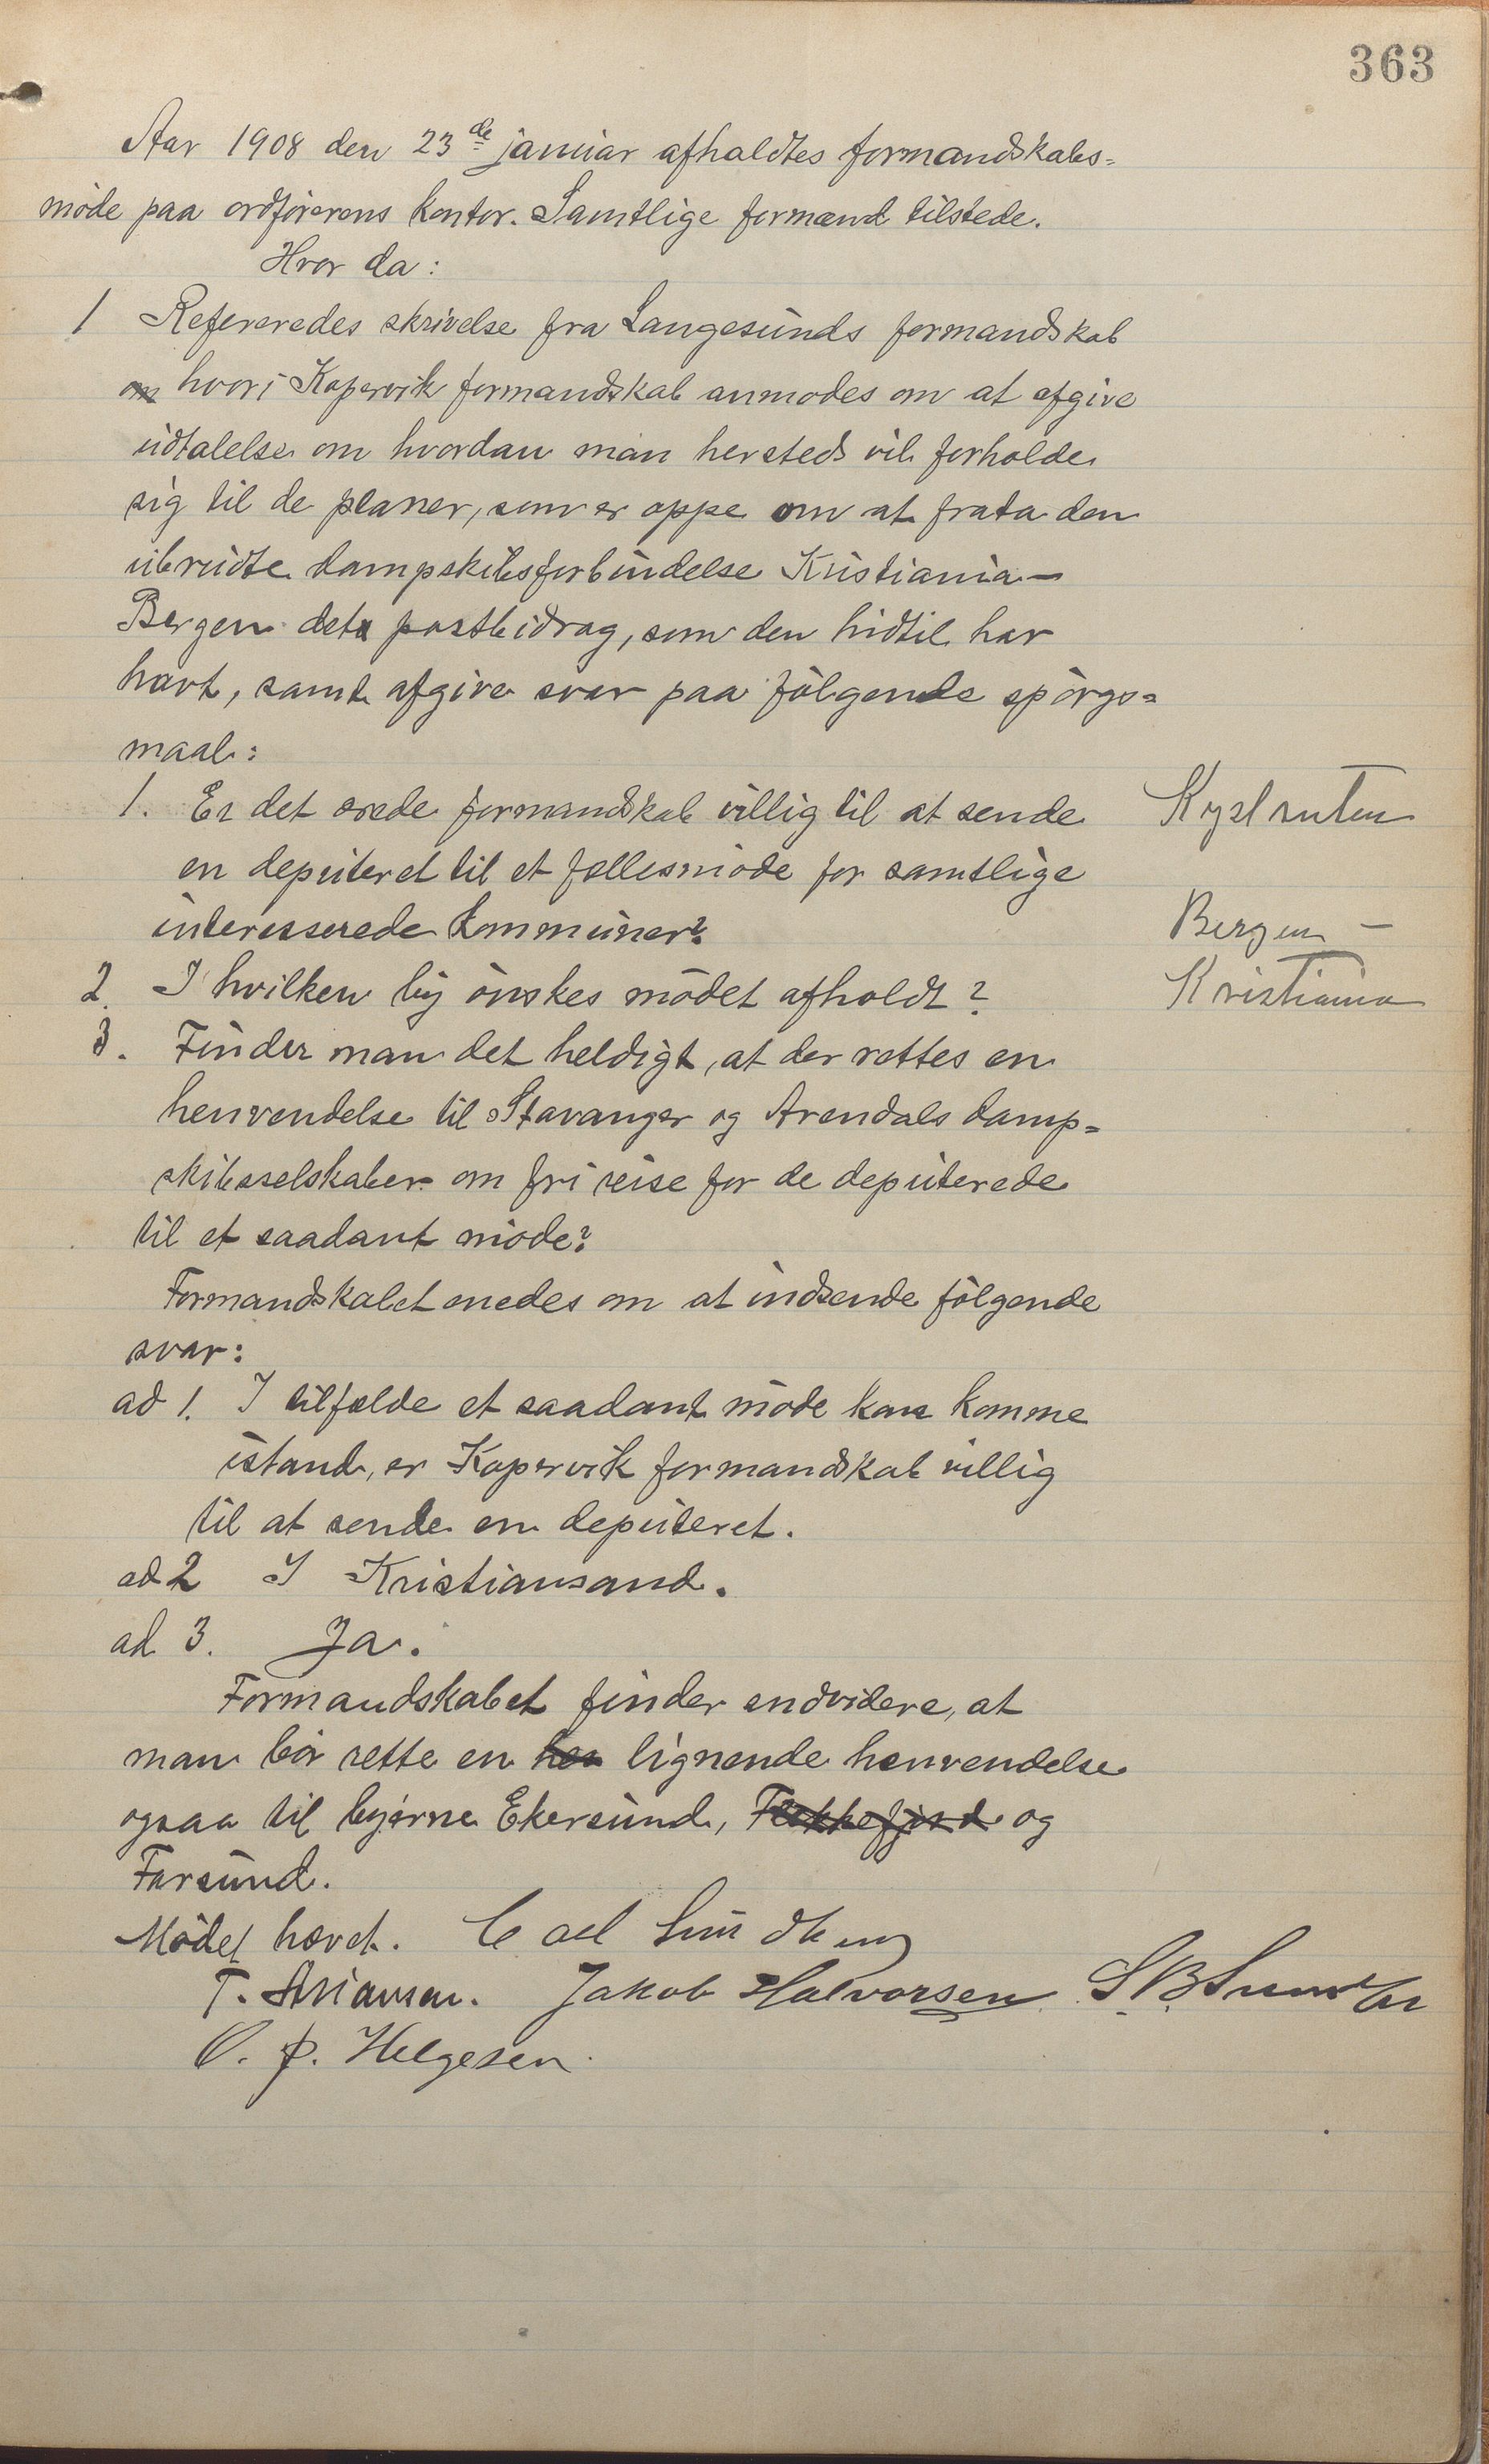 363
Aar 1908 den 23de januar afholdtes formandskabs=
møde paa ordførerens kontor. Samtlige formænd tilstede.
Hvor da:
1 Refereredes skrivelse fra Langesunds formandskab
om hvori Kopervik formandskab anmodes om at afgive
udtalelse om hvordan man hersteds vil forholde
sig til de planer, som er oppe om at frata den
ubrudte dampskibsforbindelse Kristiania-
Bergen det postbidrag, som den hidtil har
havt, samt afgive svar paa følgende spørgs=
maal:
1. Er det ærede formandskab villig til at sende
en deputeret til et fællesmøde for samtlige
interesserede kommuner?
Kystruten
Bergen -
Kristiania
2. I hvilken by ønskes mødet afholdt?
3. Finder man det heldigt, at der rettes en
henvendelse til Stavanger og Arendals damp=
skibsselskaber om fri reise for de deputerede
til et saadant møde?
Formandskabet enedes om at indsende følgende
svar:
ad 1. I tilfælde et saadant møde kan komme
istand, er Kopervik formandskab villig
til at sende en deputeret.
ad 2 I Kristiansand.
ad 3. Ja.
Formandskabet finder endvidere, at
man bør rette en hen lignende henvendelse
ogsaa til byerne Ekersund, Flekkefjord og
Farsund.
Mødet hævet. Carl
Jakob Halvorsen
O. P. Helgesen.